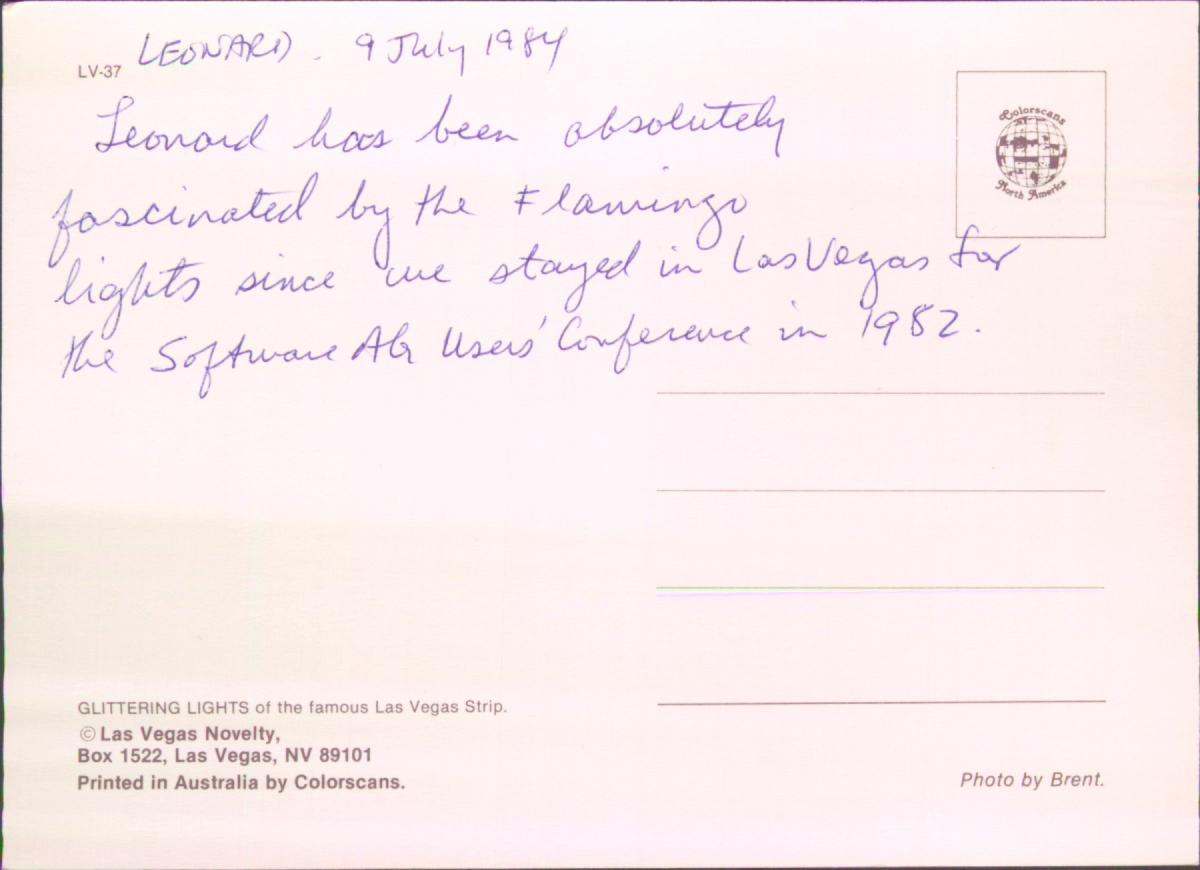 LEONARD. 9 July 1984
LV-37
Leonard has been absolutely
fascinated by the Flamingo
lights since we stayed in Las Vegas for
the Software AG Users' Conference in 1982.
Colorscans
North America
GLITTERING LIGHTS of the famous Las Vegas Strip.
© Las Vegas Novelty,
Box 1522, Las Vegas, NV 89101
Printed in Australia by Colorscans.
Photo by Brent.